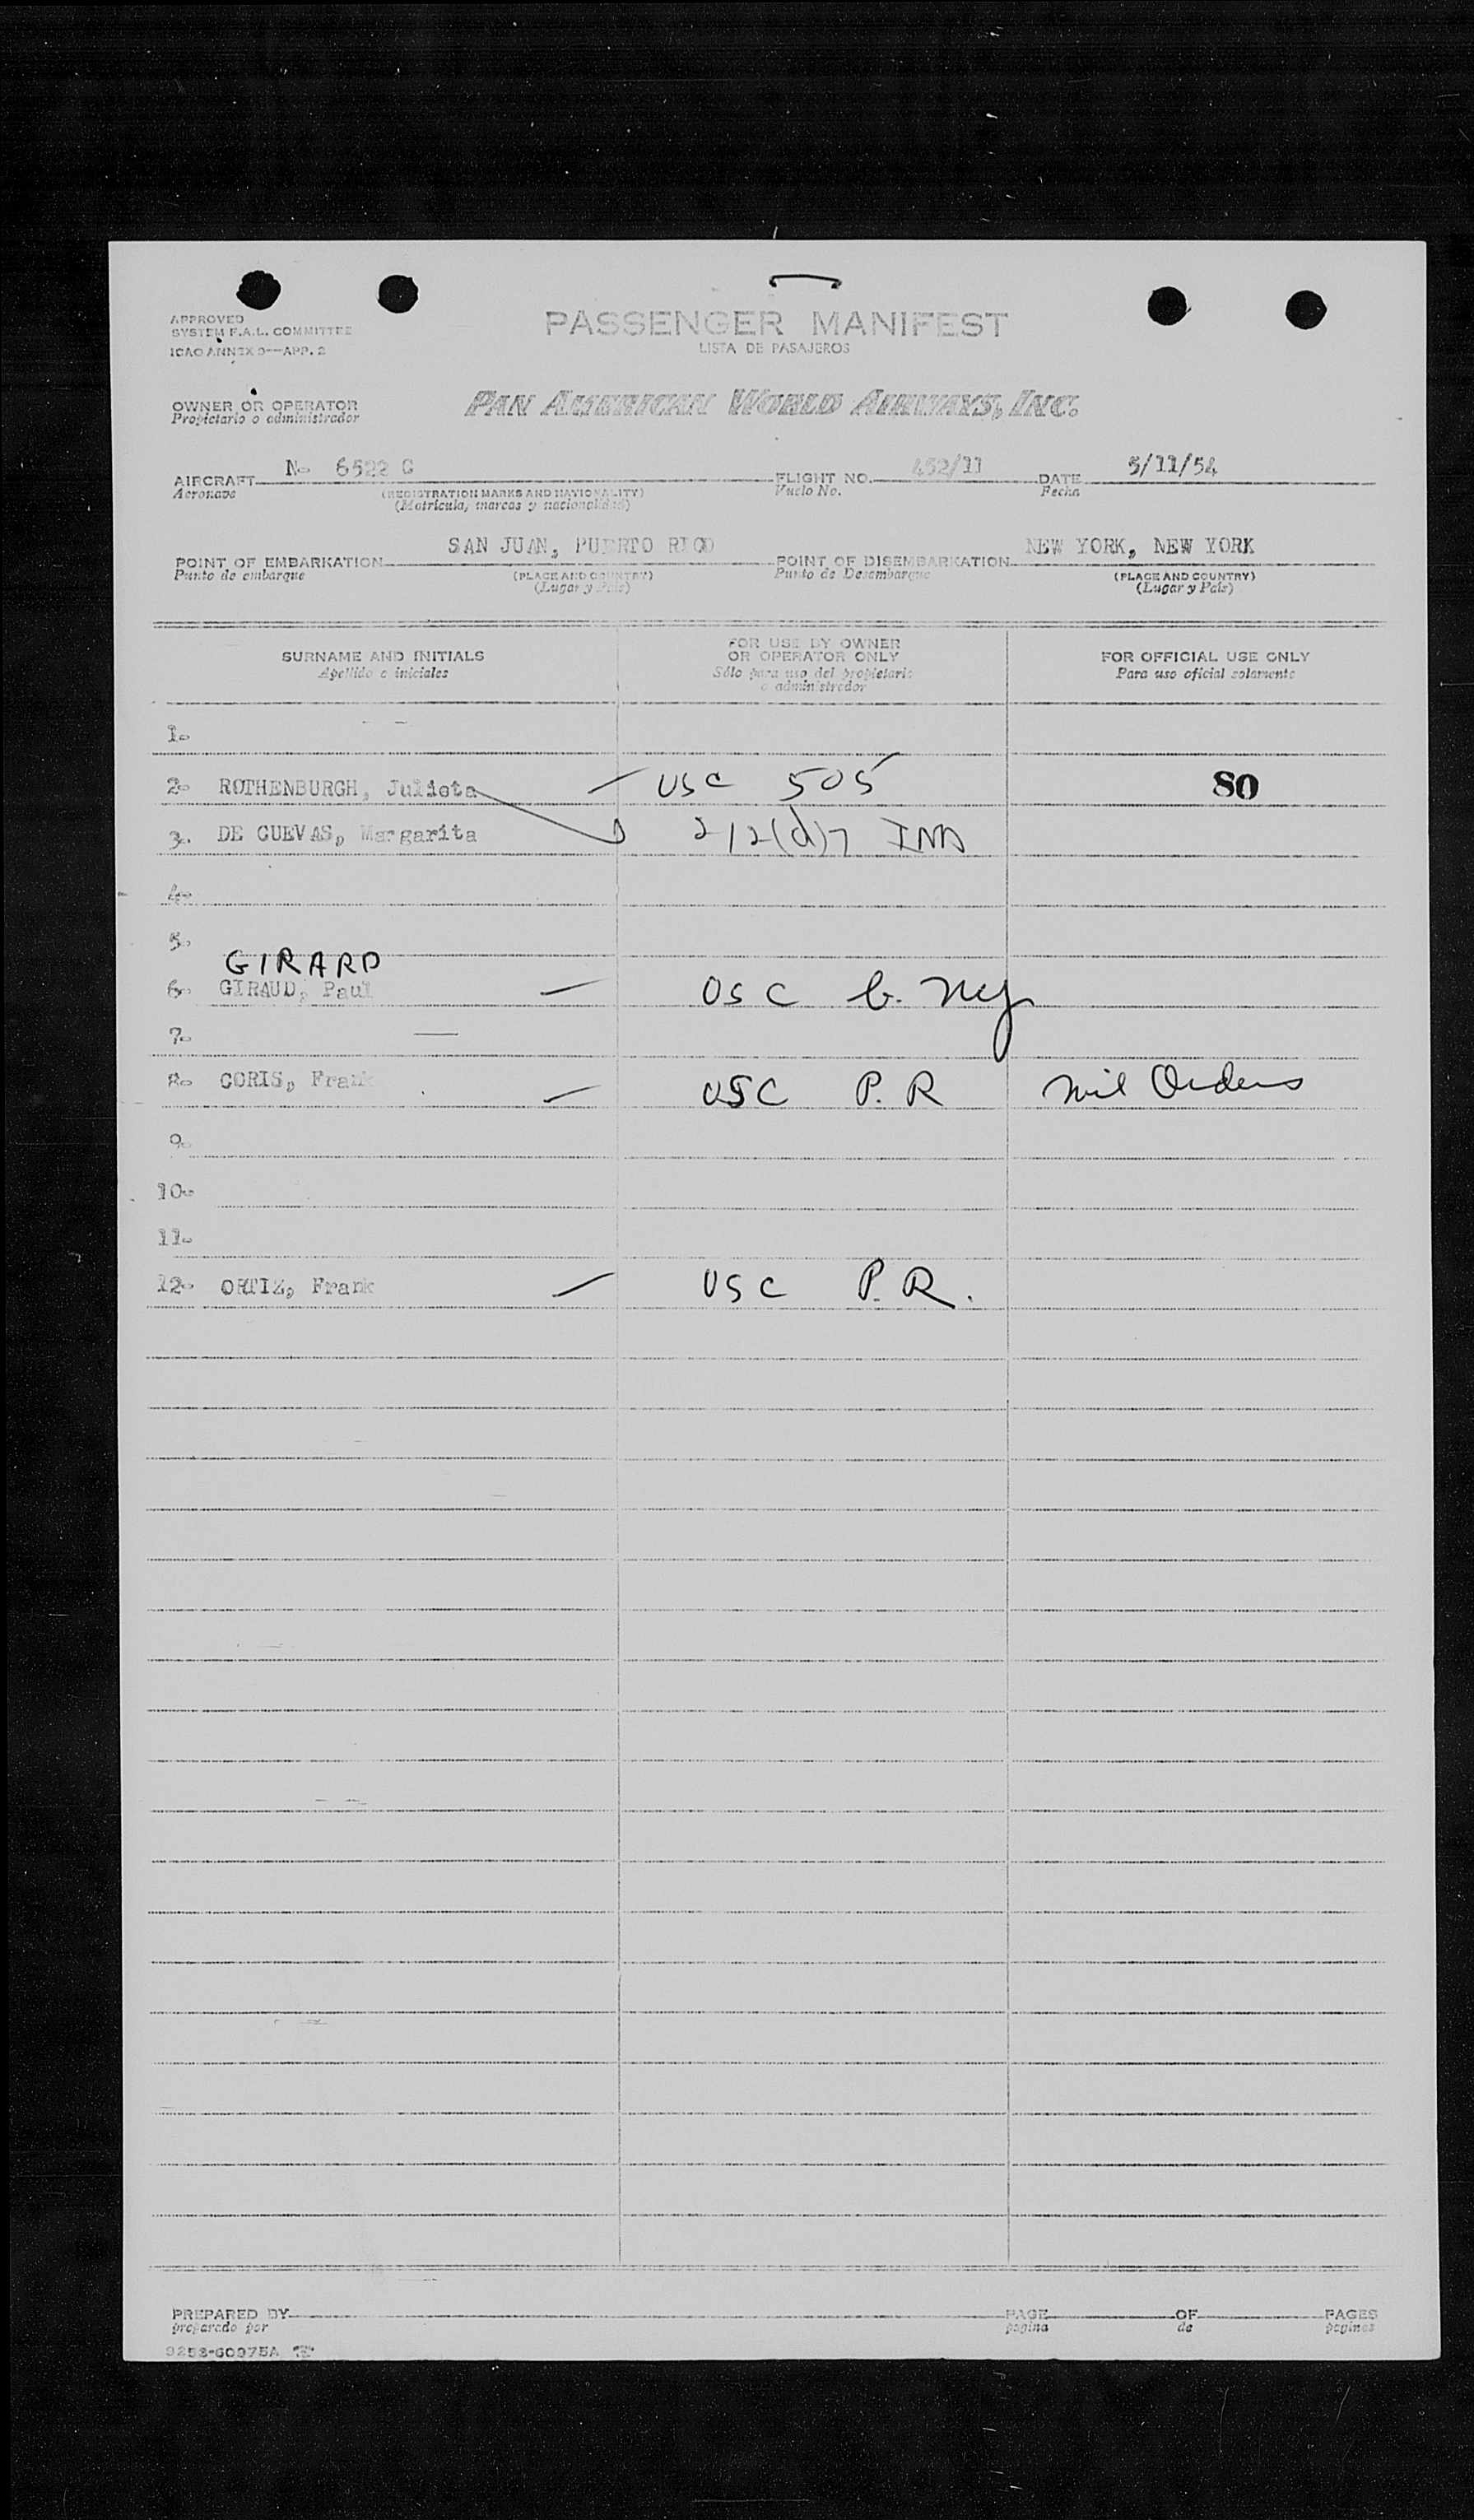 APPROVED
SYSTEM F.A.L. COMMITTEE
ICAO ANNEX 9—APP. 2
PASSENGER MANIFEST
LISTA DE PASAJEROS
OWNER OR OPERATOR
Propietario o administrador
PAN AMERICAN WORLD AIRWAYS, INC.
AIRCRAFT N- 6522 C
Aeronave
(REGISTRATION MARKS AND NATIONALITY)
(Matricula, marcas y nacionalidad)
FLIGHT NO. 452/11
Vuelo No.
DATE 5/11/54
Fecha
POINT OF EMBARKATION SAN JUAN, PUERTO RICO
Punto de embarque
(PLACE AND COUNTRY)
(Lugar y Pais)
POINT OF DISEMBARKATION NEW YORK, NEW YORK
Punto de Desembarque
(PLACE AND COUNTRY)
(Lugar y Pais)
SURNAME AND INITIALS
Apellido e iniciales
FOR USE BY OWNER
OR OPERATOR ONLY
Sólo para uso del propietario
o administrador
FOR OFFICIAL USE ONLY
Para uso oficial solamente
1-
2- ROTHENBURGH, Julieta — USC 505 80
3. DE CUEVAS, Margarita 212(d)7
4-
5-
GIRARD
6- GIRAUD, Paul — USC b. NY
7- —
8- CORIS, Frank — USC P.R Mil Orders
9-
10-
11-
12- ORTIZ, Frank — USC P.R.
PREPARED BY
preparado por
PAGE OF PAGES
pagina de paginas
9258-60975A